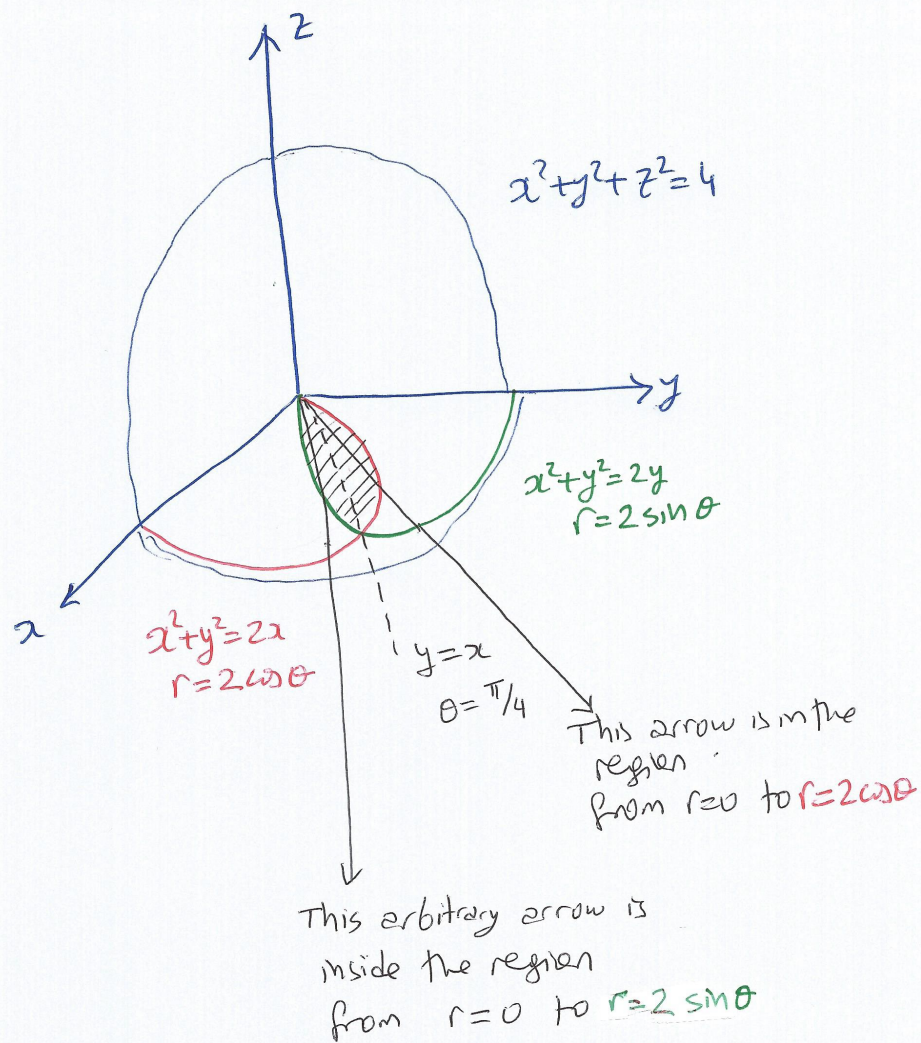 z
x²+y²+z²=4
y
x²+y²=2y
r=2sinθ
x
x²+y²=2x
r=2cosθ
y=x
θ=π/4
This arrow is in the
region
from r=0 to r=2cosθ
This arbitrary arrow is
inside the region
from r=0 to r=2 sinθ